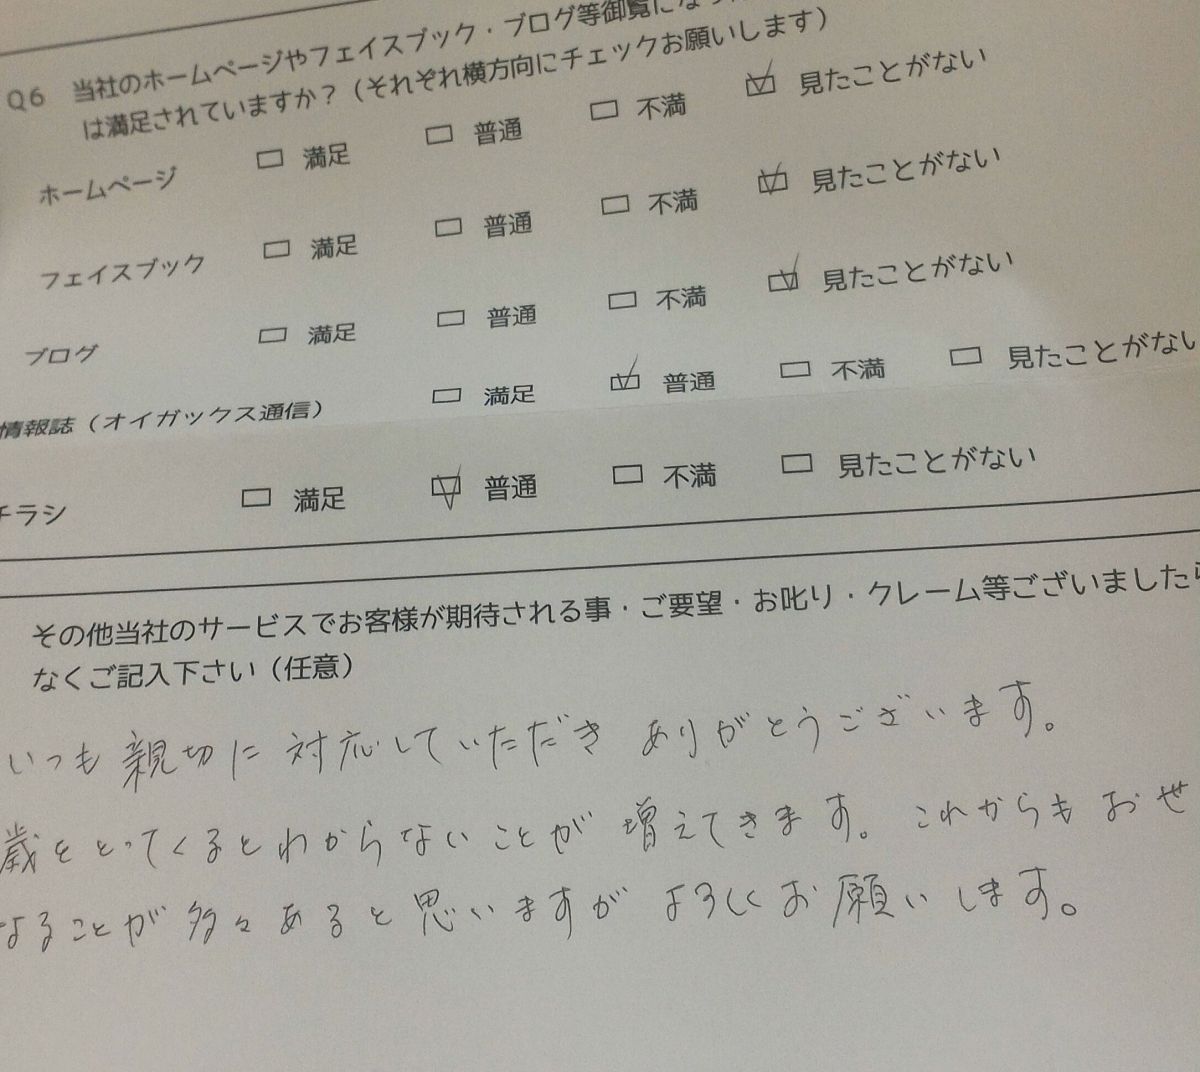 Q6 当社のホームページやフェイスブック・ブログ等御覧になった
は満足されていますか？（それぞれ横方向にチェックお願いします）
ホームページ □ 満足 □ 普通 □ 不満 ☑ 見たことがない
フェイスブック □ 満足 □ 普通 □ 不満 ☑ 見たことがない
ブログ □ 満足 □ 普通 □ 不満 ☑ 見たことがない
情報誌（オイガックス通信） □ 満足 ☑ 普通 □ 不満 □ 見たことがない
チラシ □ 満足 ☑ 普通 □ 不満 □ 見たことがない
その他当社のサービスでお客様が期待される事・ご要望・お叱り・クレーム等ございましたら
なくご記入下さい（任意）
いつも親切に対応していただきありがとうございます。
歳をとってくるとわからないことが増えてきます。これからもおせ
なることが多々あると思いますがよろしくお願いします。